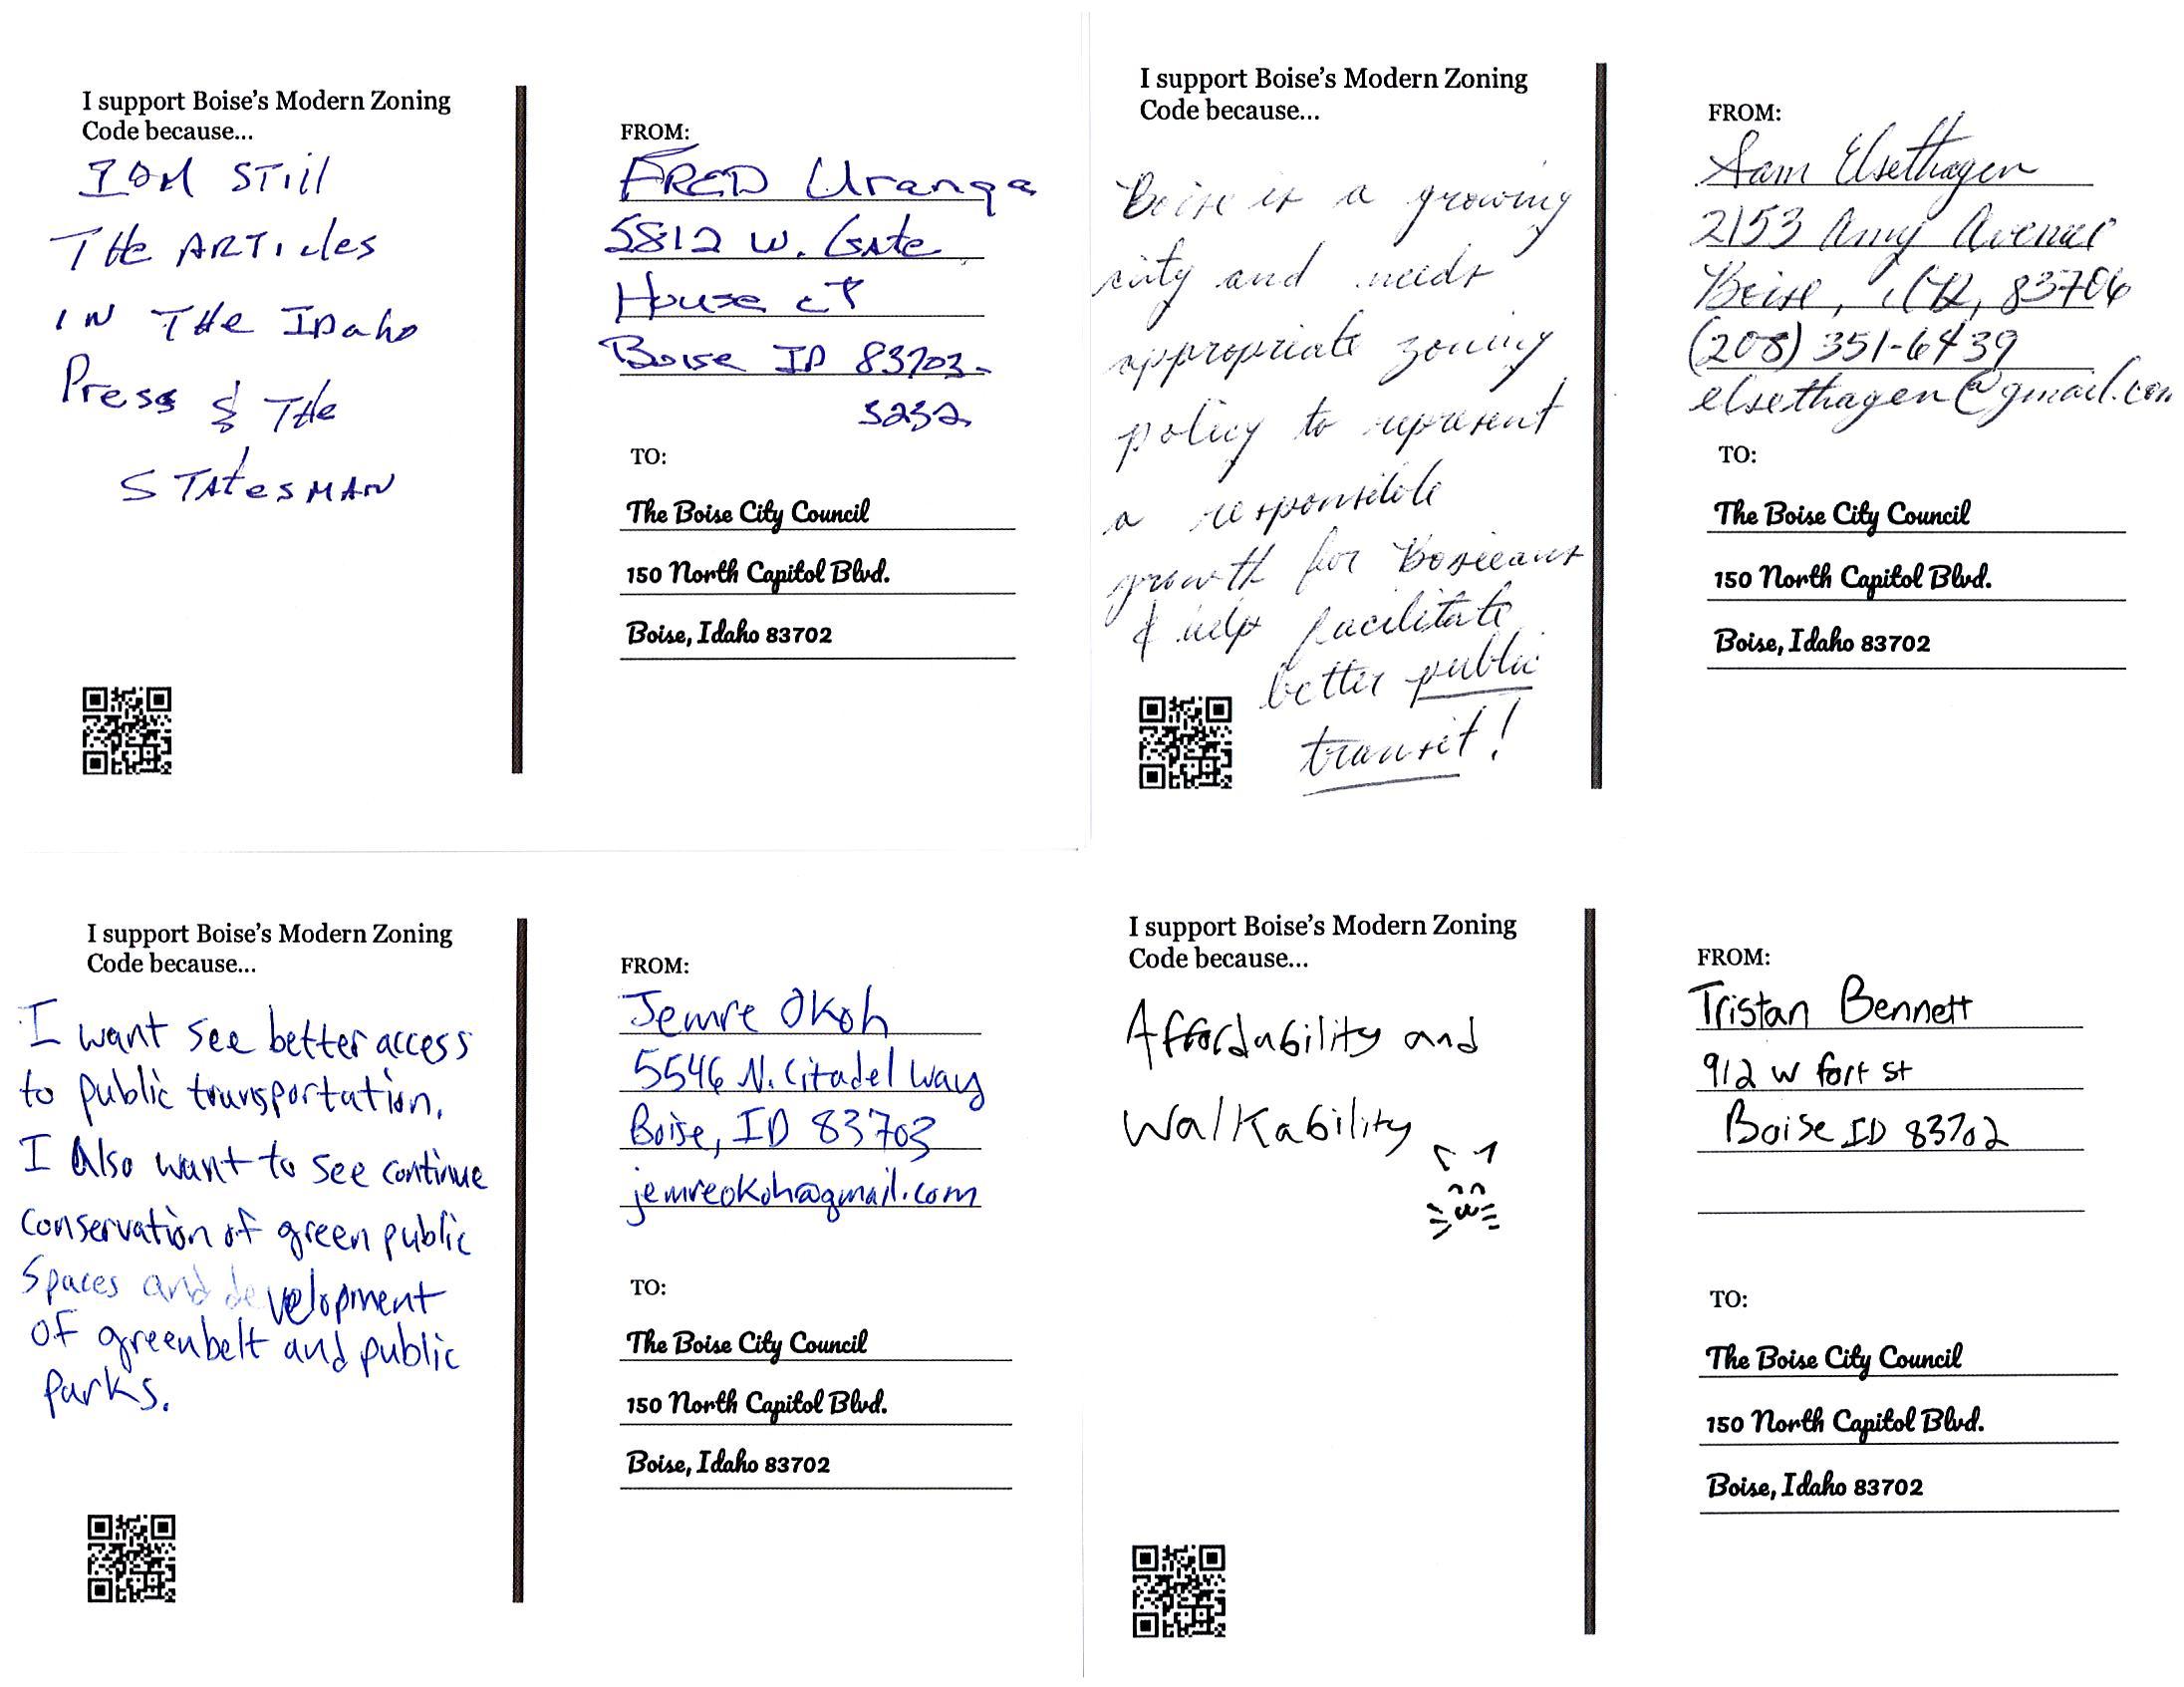 I support Boise's Modern Zoning
Code because...
I am STill
THe ARTicles
IN THe IDaho
Press & THe
STATesMAN
FROM:
FRED Uranga
5812 W. GATe
House CT
Boise ID 83703-
5232
TO:
The Boise City Council
150 North Capitol Blvd.
Boise, Idaho 83702
I support Boise's Modern Zoning
Code because...
Boise is a growing
city and needs
appropriate zoning
policy to represent
a responsible
growth for Boiseans
& help facilitate
better public
transit!
FROM:
Sam Elsethagen
2153 Amy Avenue
Boise, ID, 83706
(208) 351-6439
elsethagen@gmail.com
TO:
The Boise City Council
150 North Capitol Blvd.
Boise, Idaho 83702
I support Boise's Modern Zoning
Code because...
I want see better access
to public transportation.
I Also want to see continue
conservation of green public
spaces and development
of greenbelt and public
parks.
FROM:
Jemre Okoh
5546 N. Citadel Way
Boise, ID 83703
jemreokoh@gmail.com
TO:
The Boise City Council
150 North Capitol Blvd.
Boise, Idaho 83702
I support Boise's Modern Zoning
Code because...
Affordability and
Walkability
FROM:
Tristan Bennett
912 W fort st
Boise ID 83702
TO:
The Boise City Council
150 North Capitol Blvd.
Boise, Idaho 83702